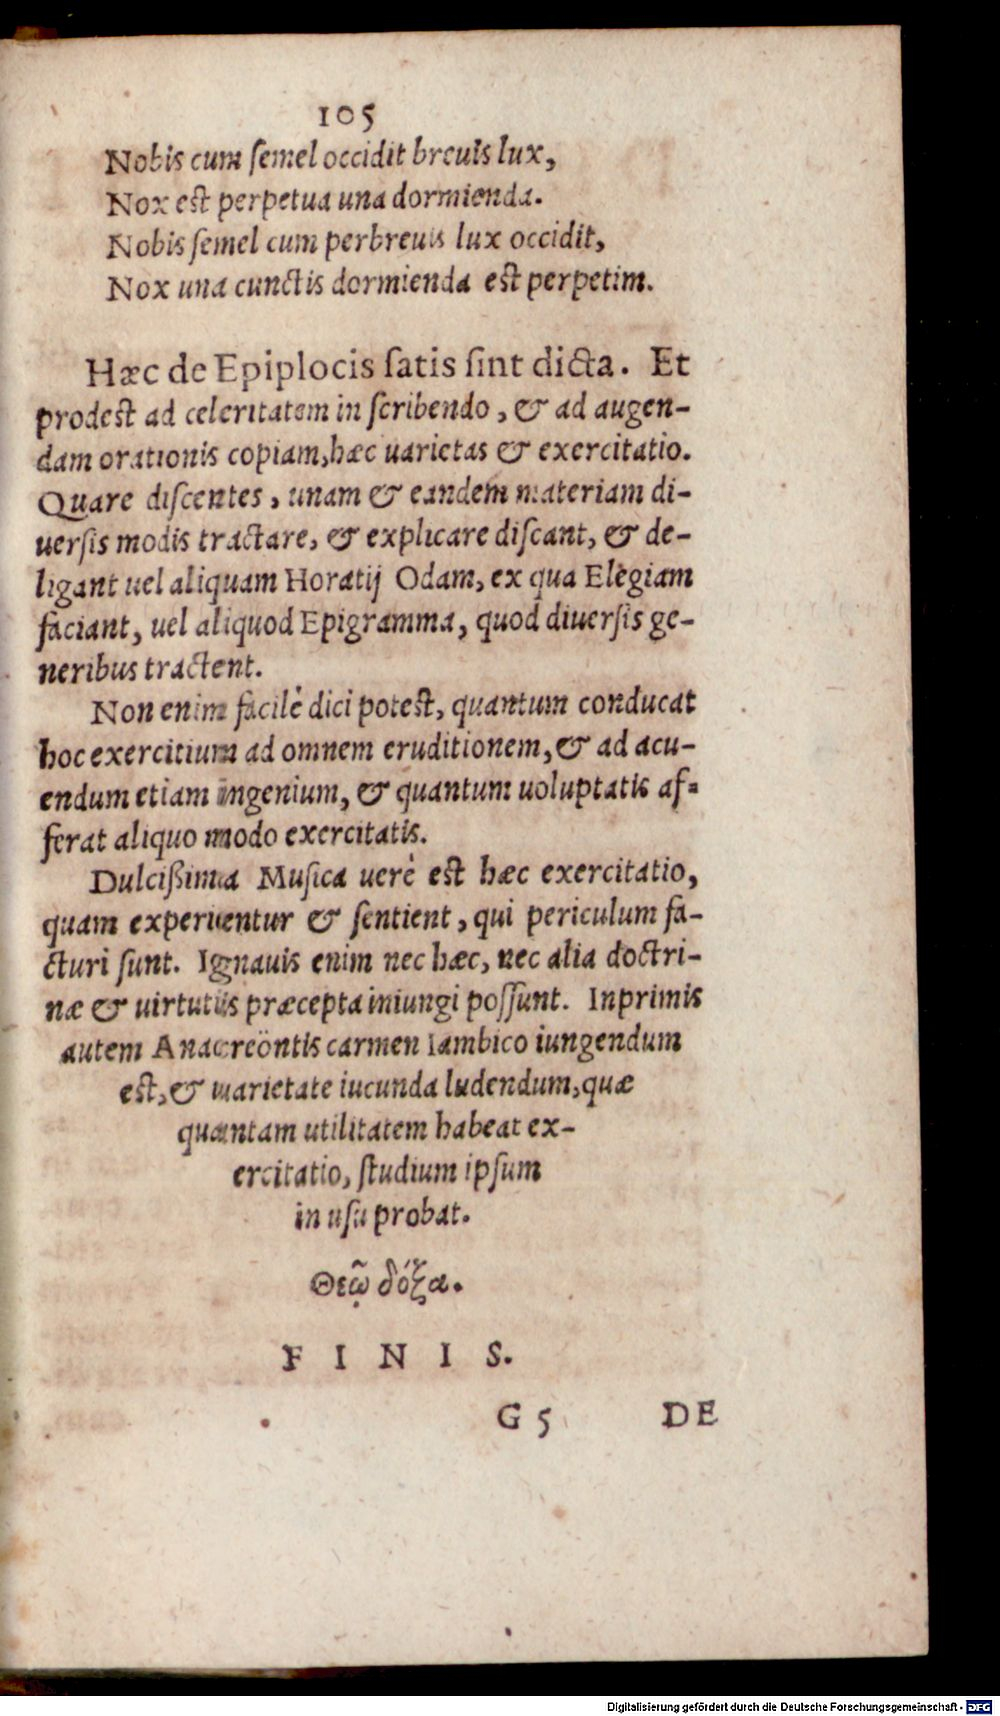 105
Nobis cum ſemel occidit breuis lux,
Nox est perpetua una dormienda.
Nobis ſemel cum perbreuis lux occidit,
Nox una cunctis dormienda est perpetim.
Hæc de Epiplocis ſatis ſint dicta. Et
prodest ad celeritatem in ſcribendo, & ad augen-
dam orationis copiam, hæc uarietas & exercitatio.
Quare diſcentes, unam & eandem materiam di-
uerſis modis tractare, & explicare diſcant, & de-
ligant uel aliquam Horatij Odam, ex qua Elegiam
faciant, uel aliquod Epigramma, quod diuerſis ge-
neribus tractent.
Non enim facilè dici potest, quantum conducat
hoc exercitium ad omnem eruditionem, & ad acu-
endum etiam ingenium, & quantum uoluptatis af-
ferat aliquo modo exercitatis.
Dulcißima Muſica uerè est hæc exercitatio,
quam experientur & ſentient, qui periculum fa-
cturi ſunt. Ignauis enim nec hæc, nec alia doctri-
næ & uirtutis præcepta iniungi poſſunt. Inprimis
autem Anacreöntis carmen Iambico iungendum
est, & uarietate iucunda ludendum, quæ
quantam utilitatem habeat ex-
ercitatio, ſtudium ipſum
in uſu probat.
Θεῷ δόξα.
FINIS.
G 5 DE
Digitalisierung gefördert durch die Deutsche Forschungsgemeinschaft - DFG